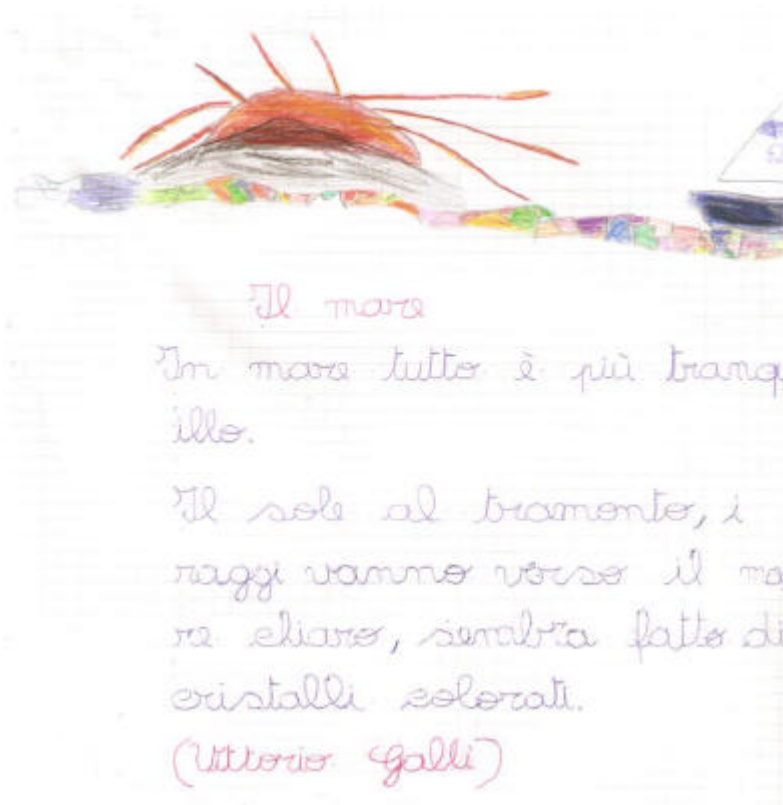 Il mare
In mare tutto è più tranq
illo.
Il sole al tramonto, i
raggi vanno verso il ma
re chiaro, sembra fatto di
cristalli colorati.
(Vittorio Galli)